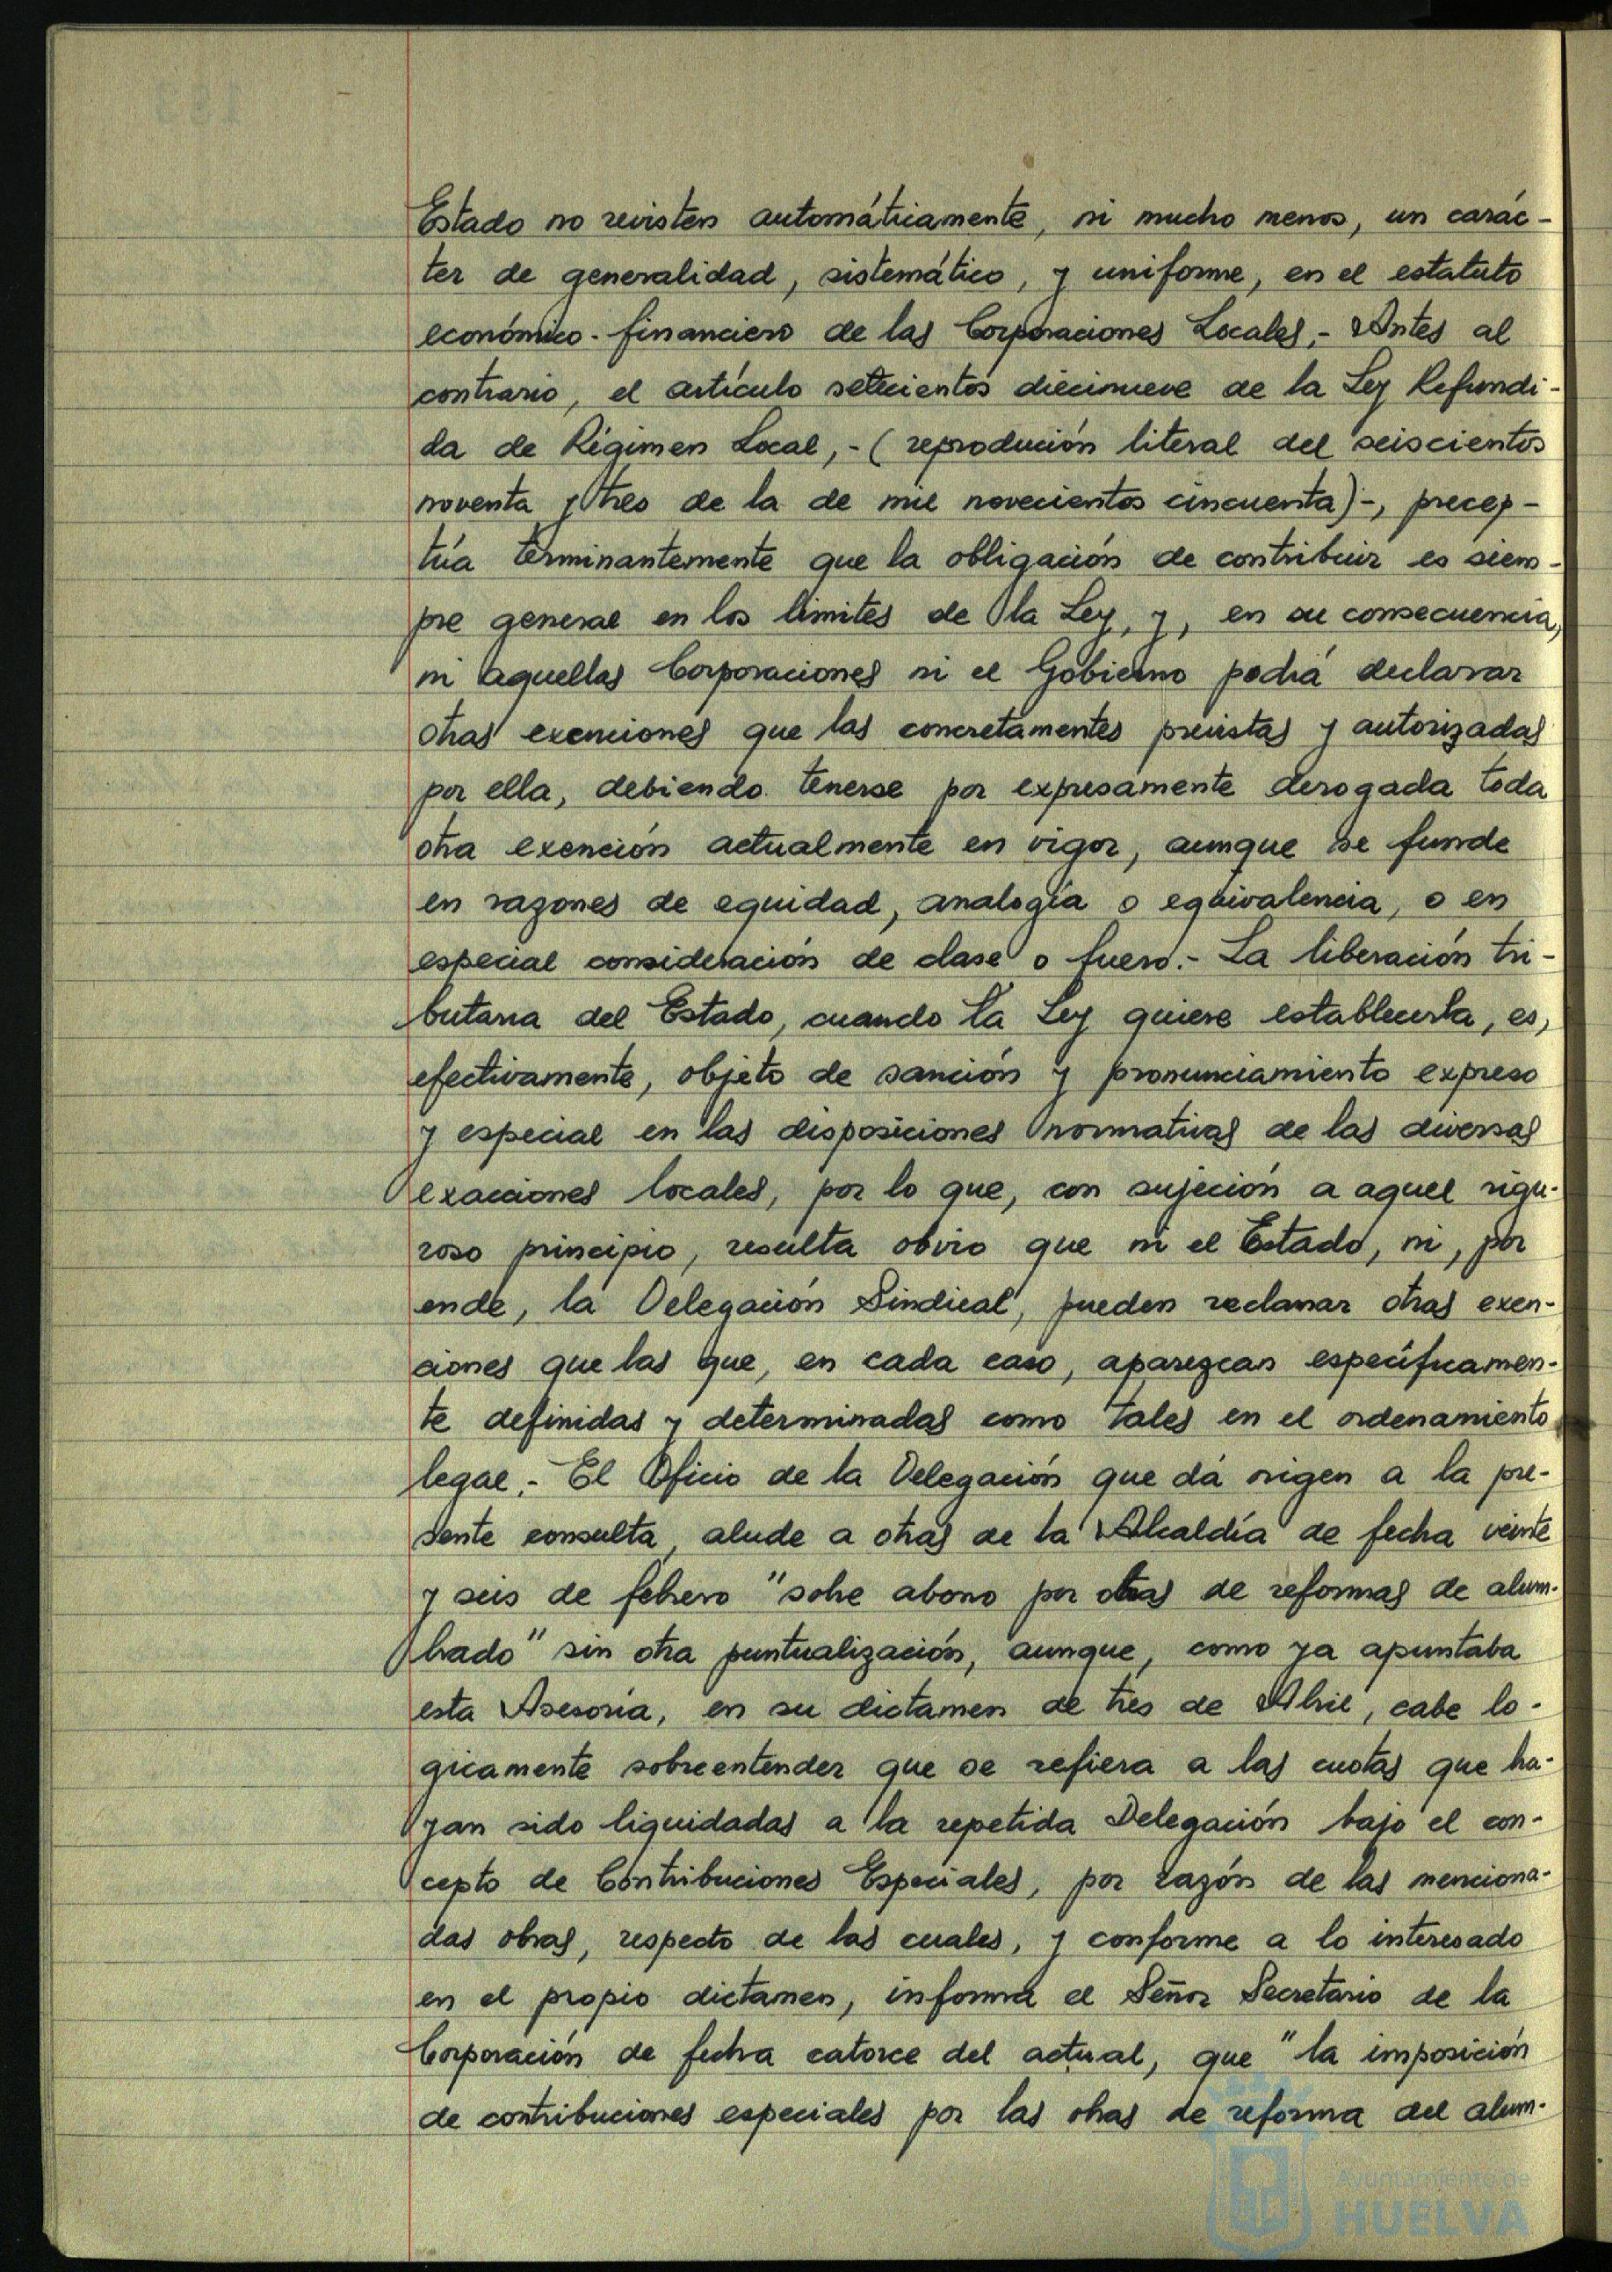 Estado no revisten automáticamente, ni mucho menos, un carác-
ter de generalidad, sistemático, y uniforme, en el estatuto
económico-financiero de las Corporaciones Locales.- Antes al
contrario, el artículo setecientos diecinueve de la Ley Refundi-
da de Régimen Local,-(reprodución literal del seiscientos
noventa y tres de la de mil novecientos cincuenta)-, precep-
túa terminantemente que la obligación de contribuir es siem-
pre general en los limites de la Ley, y, en su consecuencia,
ni aquellas Corporaciones ni el Gobierno podrá declarar
otras exenciones que las concretamentes previstas y autorizadas
por ella, debiendo tenerse por expresamente derogada toda
otra exención actualmente en vigor, aunque se funde
en razones de equidad, analogía o equivalencia, o en
especial consideración de clase o fuero.- La liberación tri-
butaria del Estado, cuando la Ley quiere establecerla, es,
efectivamente, objeto de sanción y pronunciamiento expreso
y especial en las disposiciones normativas de las diversas
exacciones locales, por lo que, con sujeción a aquel rigu-
roso principio, resulta obvio que ni el Estado, ni, por
ende, la Delegación Sindical, pueden reclamar otras exen-
ciones que las que, en cada caso, aparezcan específicamen-
te definidas y determinadas como tales en el ordenamiento
legal.- El Oficio de la Delegación que dá origen a la pre-
sente consulta, alude a otras de la Alcaldía de fecha veinte
y seis de febrero "sobre abono por obras de reformas de alum-
brado" sin otra puntualización, aunque, como ya apuntaba
esta Asesoría, en su dictamen de tres de Abril, cabe lo-
gicamente sobreentender que se refiera a las cuotas que ha-
yan sido liquidadas a la repetida Delegación bajo el con-
cepto de Contribuciones Especiales, por razón de las menciona-
das obras, respecto de las cuales, y conforme a lo interesado
en el propio dictamen, informa el Señor Secretario de la
Corporación de fecha catorce del actual, que "la imposición
de contribuciones especiales por las obras de reforma del alum-
Ayuntamiento de
HUELVA